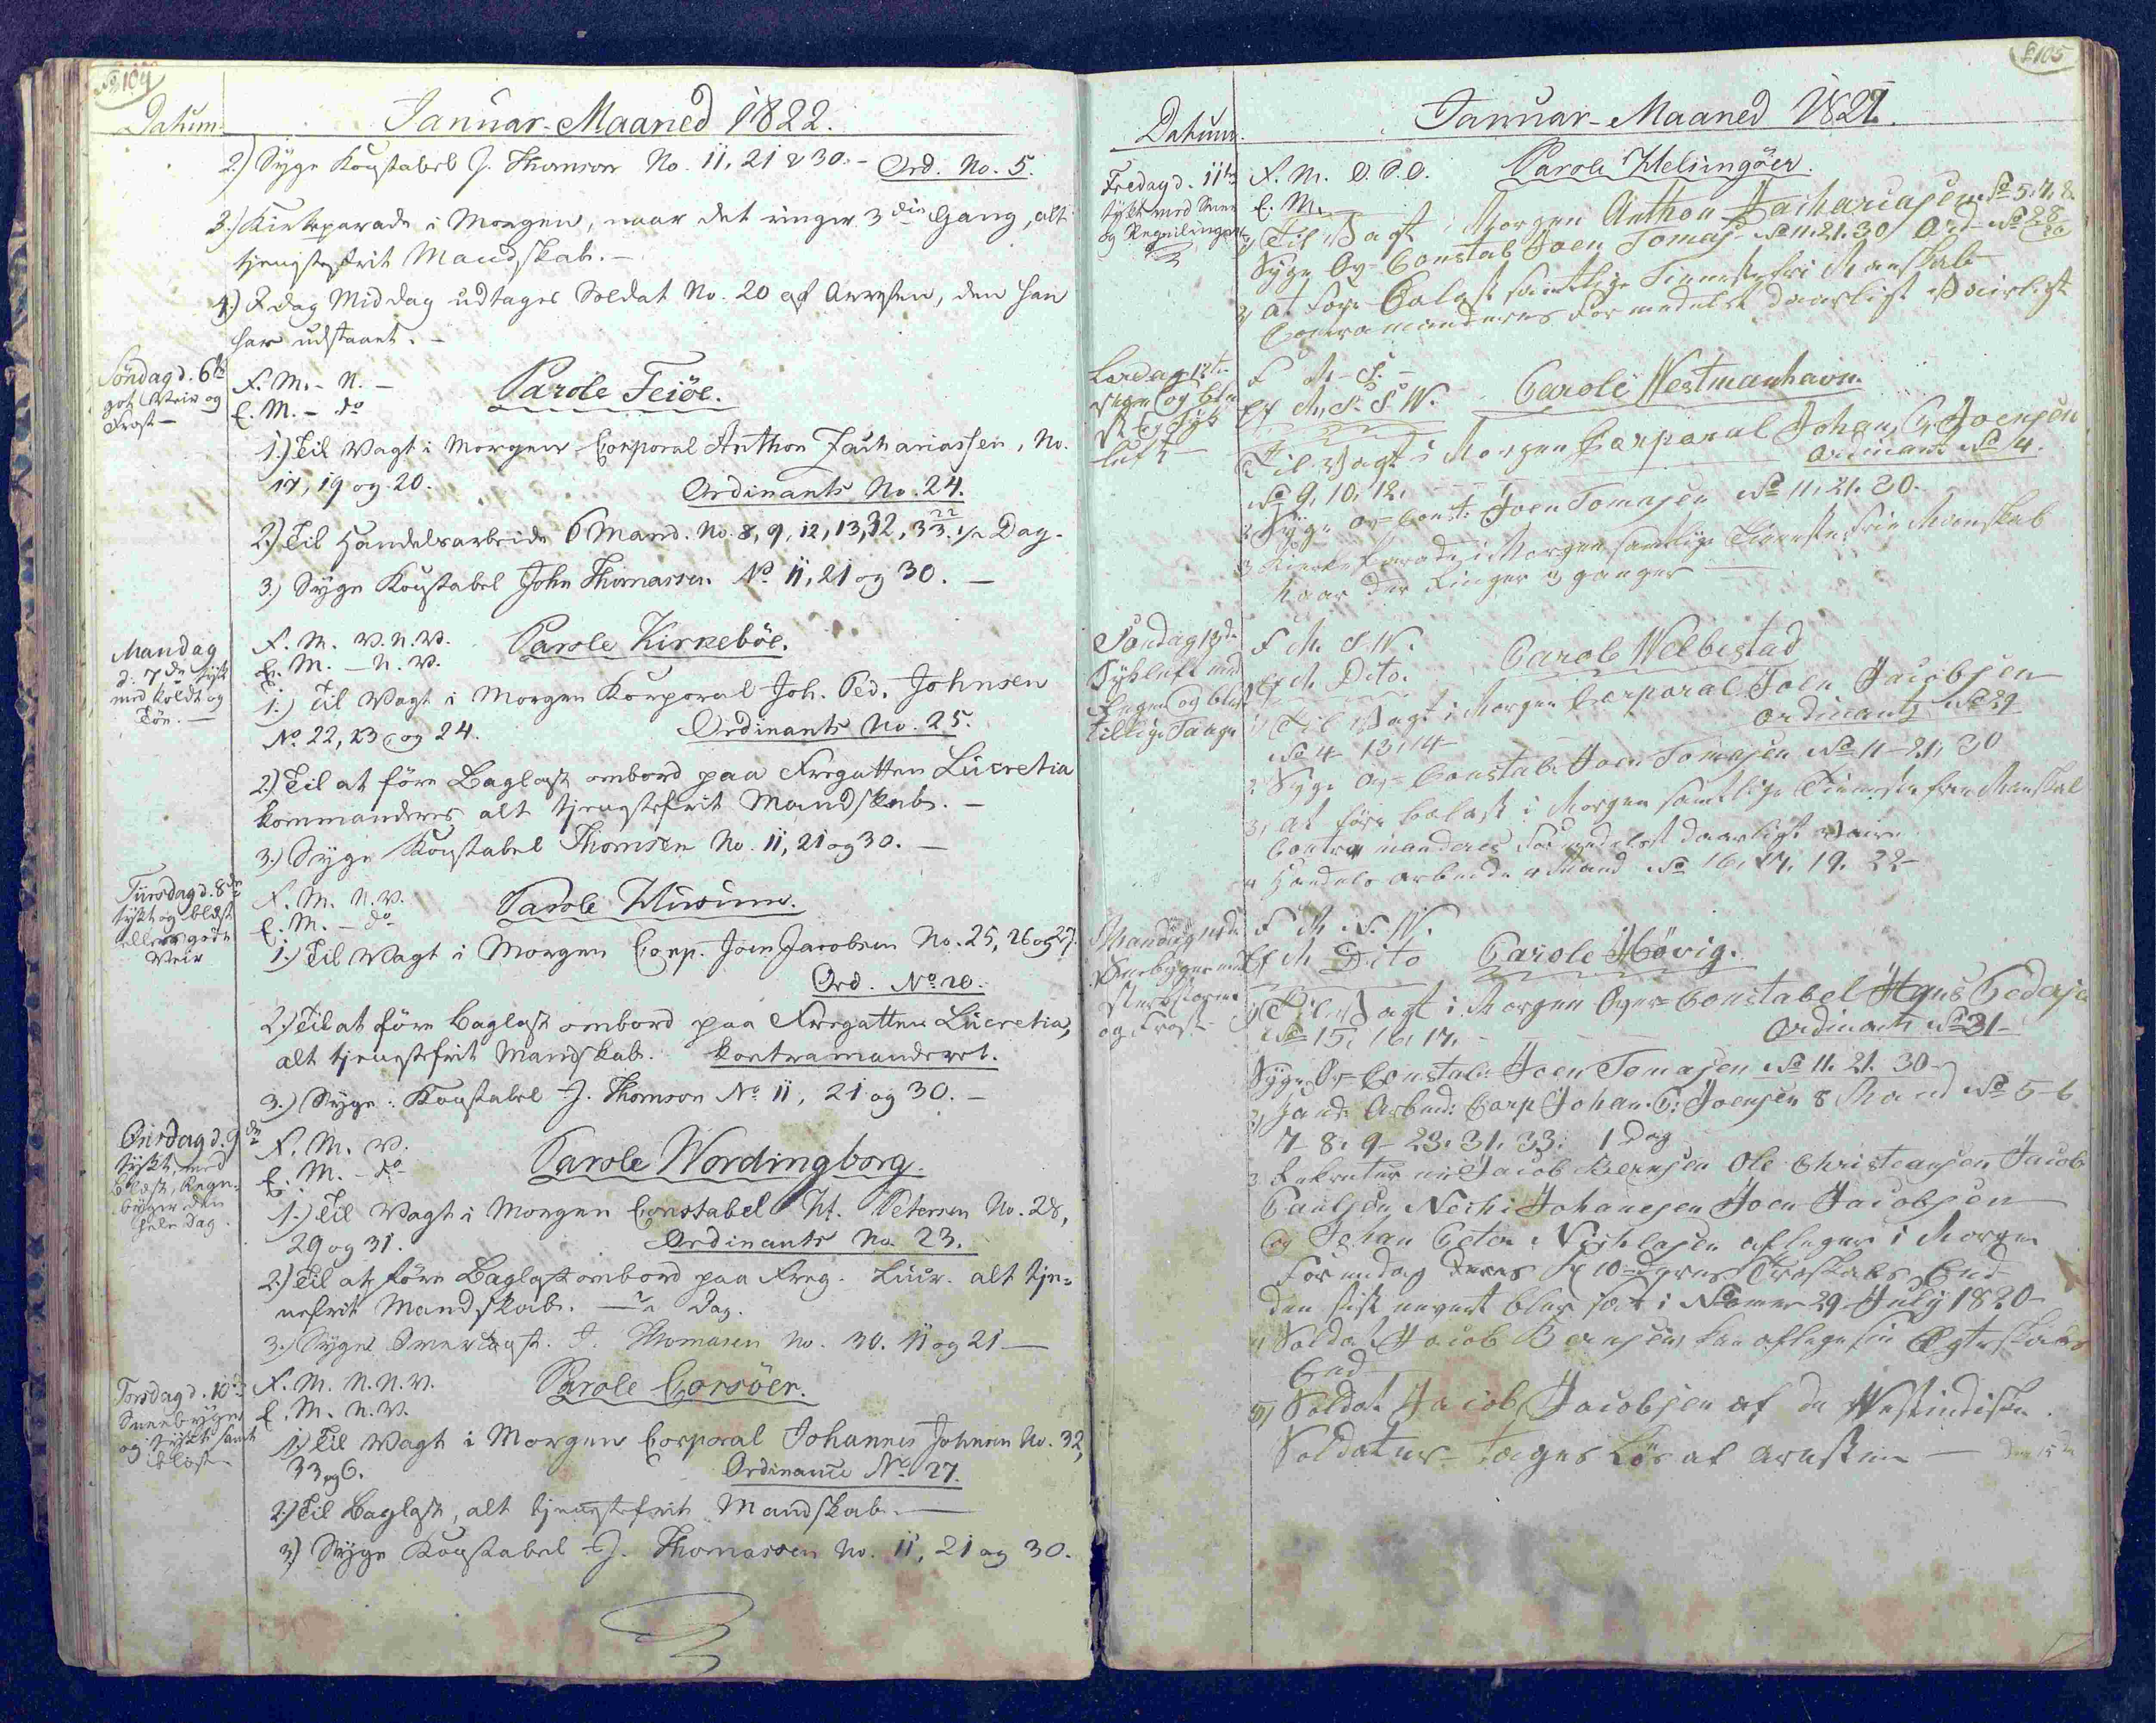 No 104
Datum.
Januar-Maaned 1822.
2.) Syge Konstabel J. Thomson No. 11, 21 & 30. - Ord. No. 5.
3.) Kirkeparade i Morgen, naar det ringer 3die Gang, alt
tjenestefrit Mandskab. -
4.) I dag Middag udtages Soldat No. 20 af Arresten, den han
har udstaaet. -
Søndag d. 6te
got Veir og
Frost -
F. M. - N. -
E. M. - do
Parole Feiöe.
1.) Til Vagt i Morgen Corporal Anthon Zachariassen, No.
17, 19 og 20.
Ordinants No. 24.
2.) Til Handelsarbeide 6 Mand. No. 8, 9, 12, 13, 32, 33. 1/2 Dag.
22
3.) Syge Konstabel John Thomassen No 11, 21 og 30. -
Mandag
d. 7de tykt
med koldt og
Töe. -
F. M. V. N. V.
E. M. - N. V.
Parole Kirkeböe.
1.) Til Vagt i Morgen Korporal Joh. Ped. Johnsen
No 22, 23 og 24.
Ordinants No. 25.
2.) Til at före Baglast ombord paa Fregatten Lucretia
kommanderes alt tjenestefrit Mandskab. -
3.) Syge Konstabel Thomsen No. 11, 21 og 30. -
Tirsdag d. 8de
tykt og blæst
ellers godt
Veir
F. M. N. V.
E. M. - do
Parole Husum.
1.) Til Vagt i Morgen Corp. Joen Jacobsen No. 25, 26 og 27.
Ord. No 20.
2.) Til at före Baglast ombord paa Fregatten Lucretia,
alt tjenestefrit Mandskab. kontramanderet.
3.) Syge: Konstabel J. Thomson No 11, 21 og 30. -
Onsdag d. 9de
tykt, med
blæst, Regn-
byger den
hele Dag.
F. M. V.
E. M. - do
Parole Wordingborg.
1.) Til Vagt i Morgen Constabel H. Petersen No. 28,
29 og 31.
Ordinants No. 23.
2.) Til at före Baglast ombord paa Freg. Lucr. alt tje-
nefrit Mandskab. Dag.
3.) Syge Overkonst. J. Thomasen No. 30. 11 og 21 -
Torsdag d. 10de
Sneebyger
og tykt samt
blæst -
F. M. N. N. V.
E. M. N. V.
Parole Corsöer.
1.) Til Vagt i Morgen Corporal Johannes Johnsen No. 32,
33 og 6.
Ordinance No. 27.
2.) Til Baglast, alt tjenestefrit Mandskab. -
3.) Syge Konstabel J. Thomassen No. 11, 21 og 30.
105
Datum.
Januar-Maaned 1822.
Fredag d. 11te
tykt med Snee
og
F. M. O. S. O.
E. M.
Parole Helsingöer.
1) Til Vagt i Morgen Anthon Zachariasen No 5. 7. 8.
Syge Ov= Constab Joen Tomas= No 11. 21. 30 Ord= No 28
3) At före Balast samtlige Tienestefri Manskab
Contramanderes Formedelst daarligt Veirligt
Lørdag 12te
Regn og blæ
og Tyk
luft -
F M - S. -
Ef M. S. S. W.
Parole Westmanhavn.
Til Vagt i Morgen Corporal Johan P. Joensen
No 9, 10, 12,
Ordinant No 4.
2 Syge Ov= Const: Joen Tomasen No 11, 21. 30 -
3 Kierke Parade i Morgen samtlige Tieneste frie Manskab
Naar der Ringer 3 ganger
Søndag 13de
Tyk luft med
Regn og blæst
tillige Taage
F M S. W.
Ef M Dito.
Parole Welbestad
1) Til Vagt i Morgen Corporal Joen Jacobsen
No 4 - 13, 14 -
Ordinants No 29
2 Syge Ov= Constab: Joen Tomasen No 11 - 21, 30
3, At före balast i Morgen samtlige Tieneste frie Manskab
Contramanderes Formedelst daarligt Vaire
4 Handels arbeide 4 Mand No 16, 17, 19. 22 -
Mandag 14de
Sneebyger med
sterk storm
og Frost -
F M N. W.
Ef M Dito
Parole Hövig.
1) Til Vagt i Morgen Over= Constabel Hans Pederse
No 15, 16, 17. -
Ordinants No 31 -
Syge Ov= Constab: Joen Tomasen No 11. 21. 30 -
2) Hand: Arbeid: Corp Johan P: Joensen 8 Mand No 5 - 6
7 - 8. 9 - 23. 31. 33: 1 Dag
3 Rekruter nie Jacob Bernsen Ole Christeansen Jacob
Paulsen Johanesen Joen Jacobsen
og Johan Peter Nichlasen afleger i Morgen
Formidag deres Kl 10 deres Troskabs Eed
den sist nevent blev sat i Nomer 29 July 1820 -
4 Soldat Jacob Bernsen kan aflege sin Egteskabs
Eed
5) Soldat Jacob Jacobsen af de Westindiske
Soldater - Tages Lös af aresten -